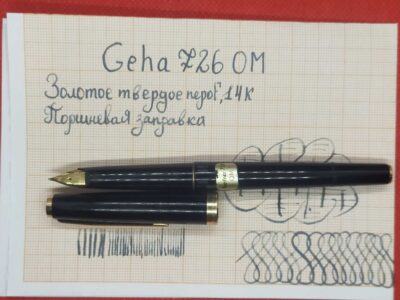 Geha 726 OM
Золотое твердое перо F, 14К
Поршневая заправка